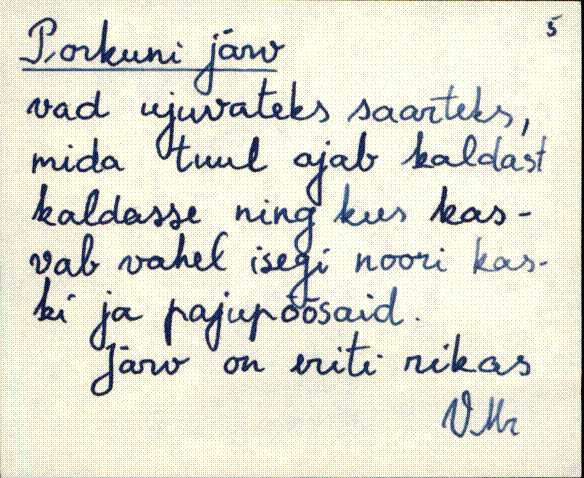 Porkuni järv
5
vad ujuvateks saarteks,
mida tuul ajab kaldast
kaldasse ning kus kas-
vab vahel isegi noori kas-
ki ja pajupõõsaid.
Järv on eriti rikas